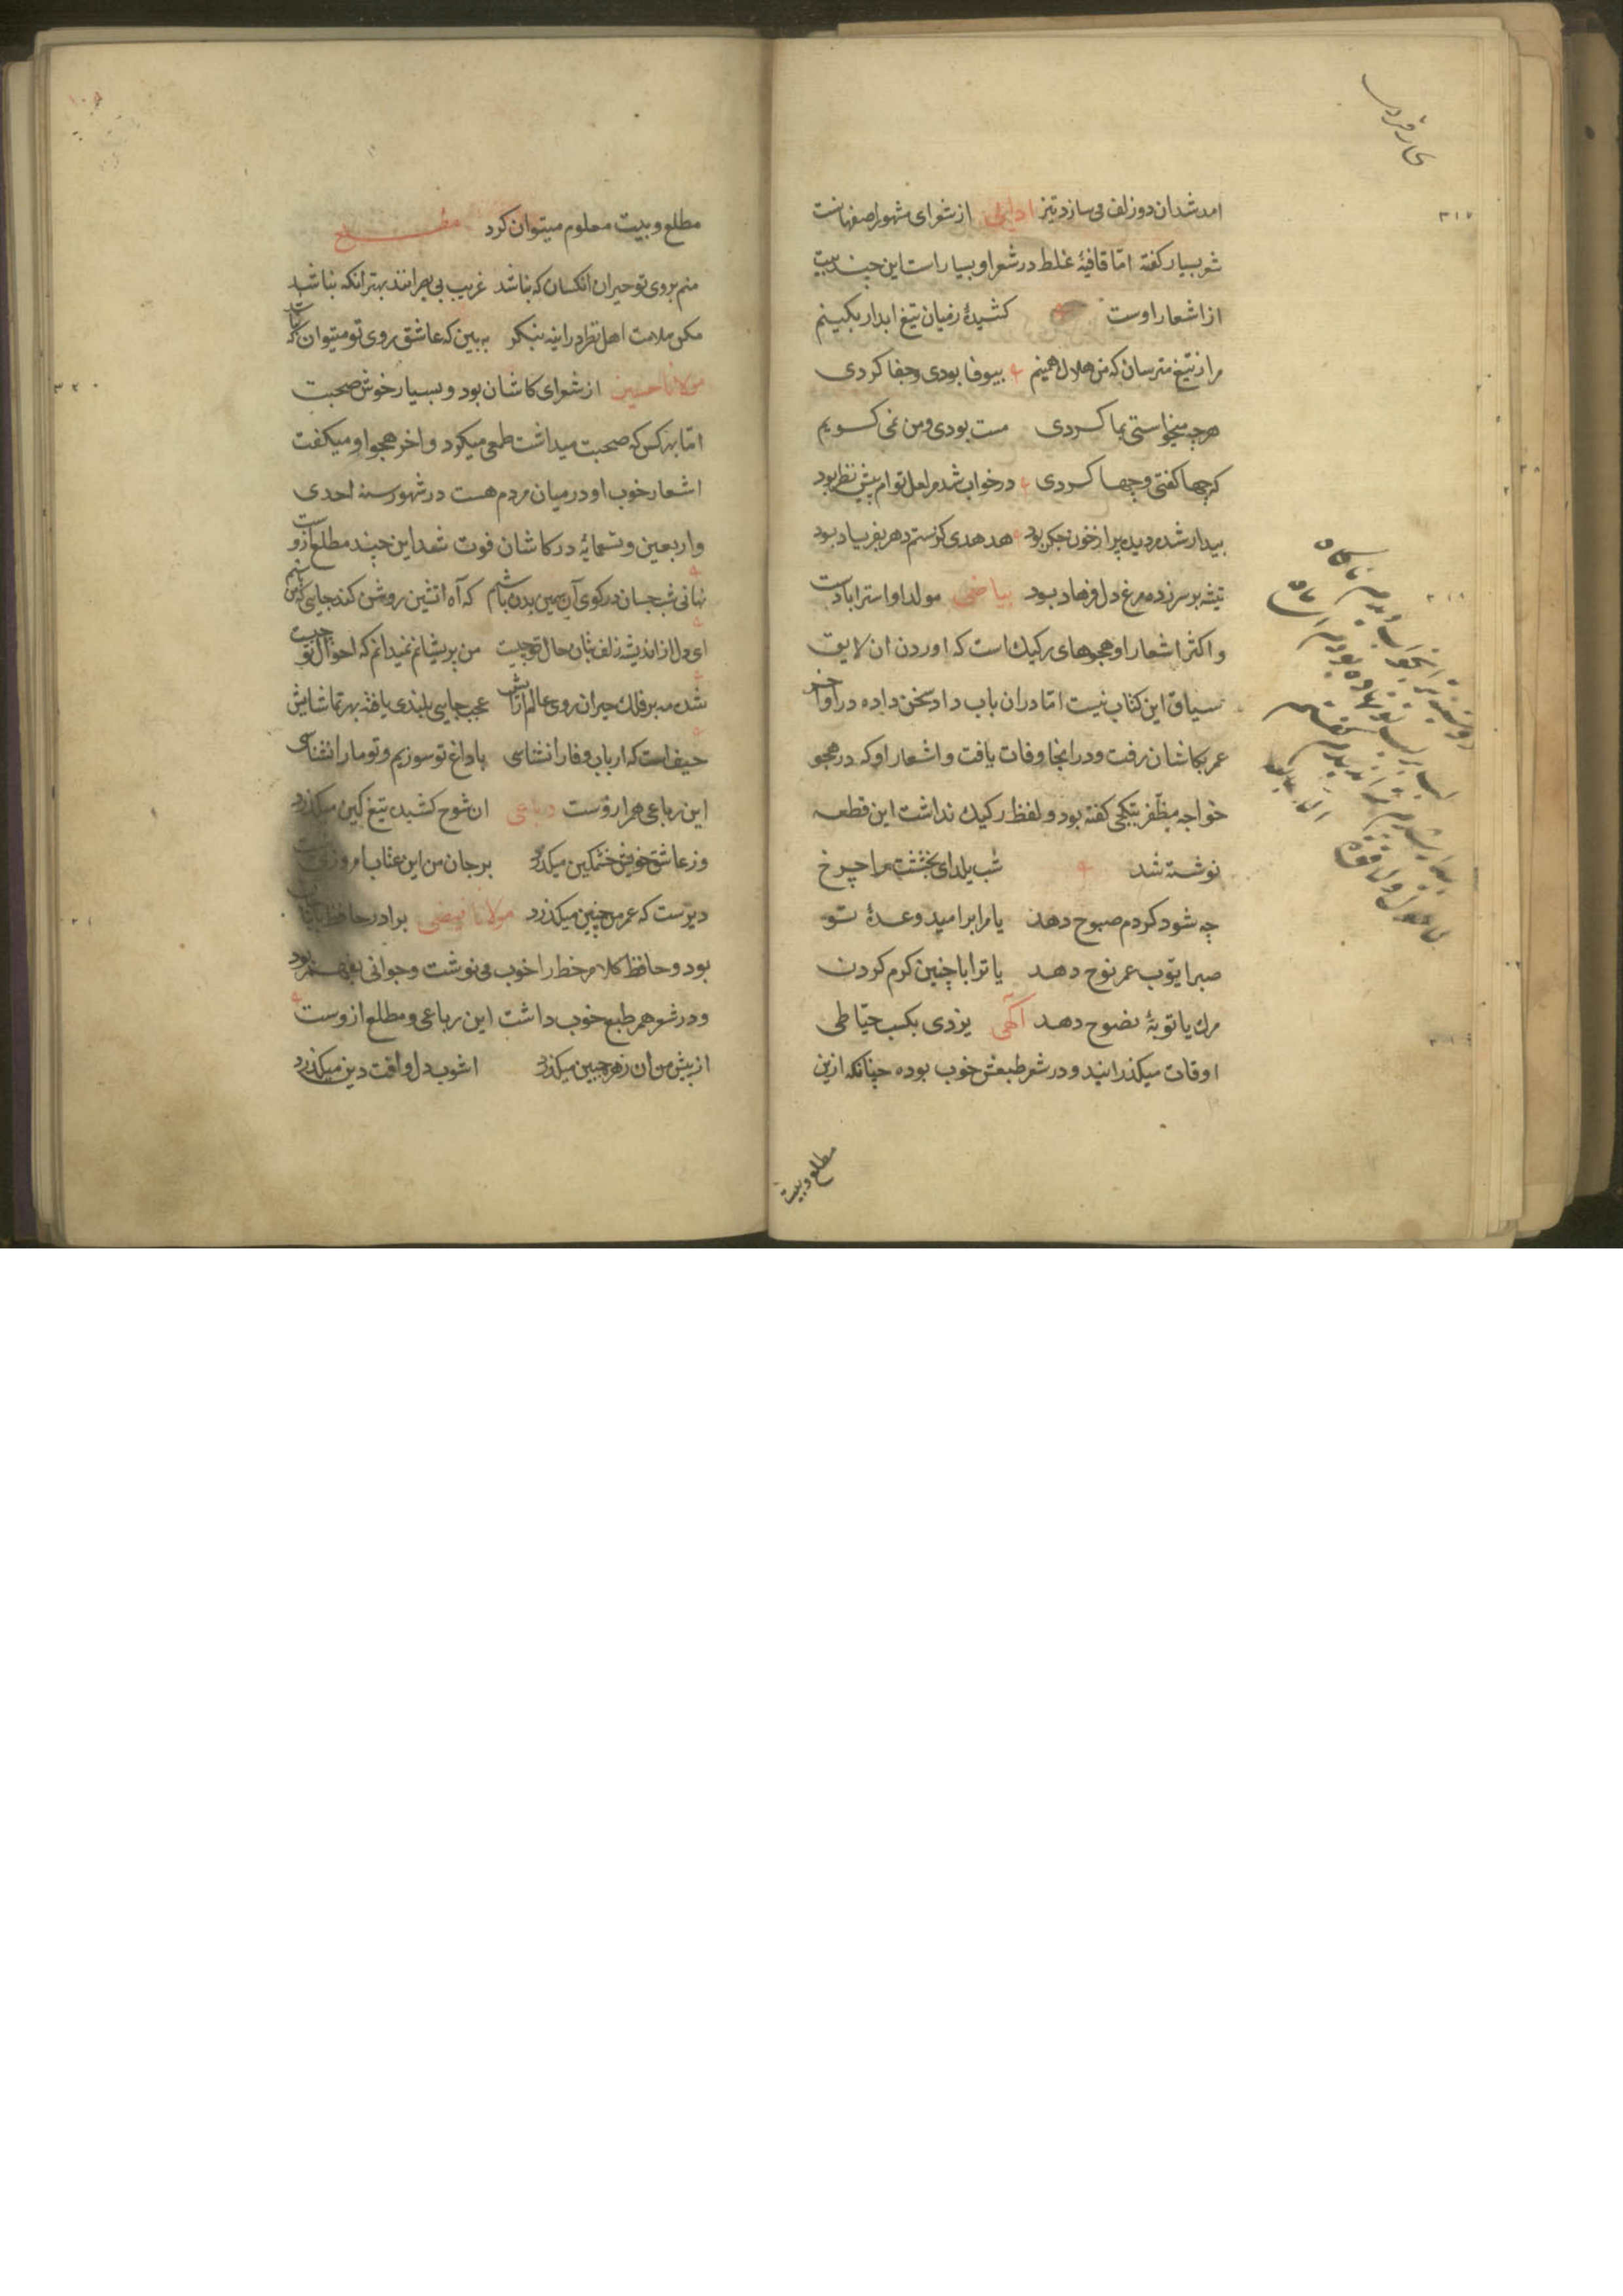 امد شدان دو زلف می سازد تیز ادایی از شعرای شهور اصفهانست
شعر بسیار کفته امّا قافیهٔ غلط در شعر او بسیار است این چند بیت
از اشعار اوست کشیدهٔ ز میان تیغ ابدار بکینم
مرا ز تیغ مترسان که من هلال همینم بیوفا بودی و جفا کردی
هر چه میخواستی بما کردی مست بودی و من نمی کویم
که چها کفتی و چها کردی در خواب شدم لعل توام پیش نظر بود
بیدار شدم دیده پر از خون جکر بود هدهدی کز ستم دهر بفریاد بود
تیشه بر سر زده مرغ دل فرهاد بود بیاضی مولد او استرابادست
و اکثر اشعار او هجوهای رکیک است که اوردن ان لایق
سیاق این کتاب نیست امّا در ان باب داد سخن داده در اواخر
عمر بکاشان رفت و در انجا وفات یافت و اشعار او که در هجو
خواجه مظفّر بتکچی کفته بود و لفظ رکیک نداشت این قطعه
نوشته شد شب یلدای بخششت مرا چرخ
چه شود کر دم صبوح دهد یا مرا بر امید وعدهٔ تو
صبر ایّوب عمر نوح دهد یا ترا با چنین کرم کردن
مرك یا توبهٔ نصوح دهد آکهی یزدی بکسب خیّاطی
اوقات میکذرانید و در شعر طبعش خوب بوده چنانکه ازین
مطلع و بیت
مطلع و بیت معلوم میتوان کرد مطلع
منم بروی تو حیران انکسان که نباشد غریب بی بصرانند بهتر انکه نباشد
مکن ملامت اهل نظر در اینه بنکر به بین که عاشق روی تو میتوان که نباشد
مولانا حسین از شعرای کاشان بود و بسیار خوش صحبت
امّا بهر کس که صحبت میداشت طمعی میکرد و اخر هجو او میکفت
اشعار خوب او در میان مردم هست در شهور سنه احدی
و اربعین و تسعمایه در کاشان فوت شد این چند مطلع ازوست
نهانی شب چسان در کوی آن سیمین بدن باشم که آه اتشین روشن کند جایی که من باشم
ای دل از اندیشه زلف بتان حال تو چیست من پریشانم نمیدانم که احوال تو چیست
شده مه بر فلك حیران روی عالم ارایش عجب جایی بلندی یافته بهر تماشایش
حیف است که ارباب وفا را نشناسی ما داغ تو سوزیم و تو ما را نشناسی
این رباعی هم ازوست رباعی ان شوخ کشیده تیغ کین میکذرد
وز عاشق خویش خشمکین میکذرد بر جان من این عتاب امروزی نیست
دیرست که عمر من چنین میکذرد مولانا برادر حافظ
بود و حافظ کلام خط را خوب می نوشت و جوانی بود
و در شعر هم طبع خوب داشت این رباعی و مطلع ازوست
از پیش من ان زهره جبین میکذرد اشوب دل و افت دین میکذرد